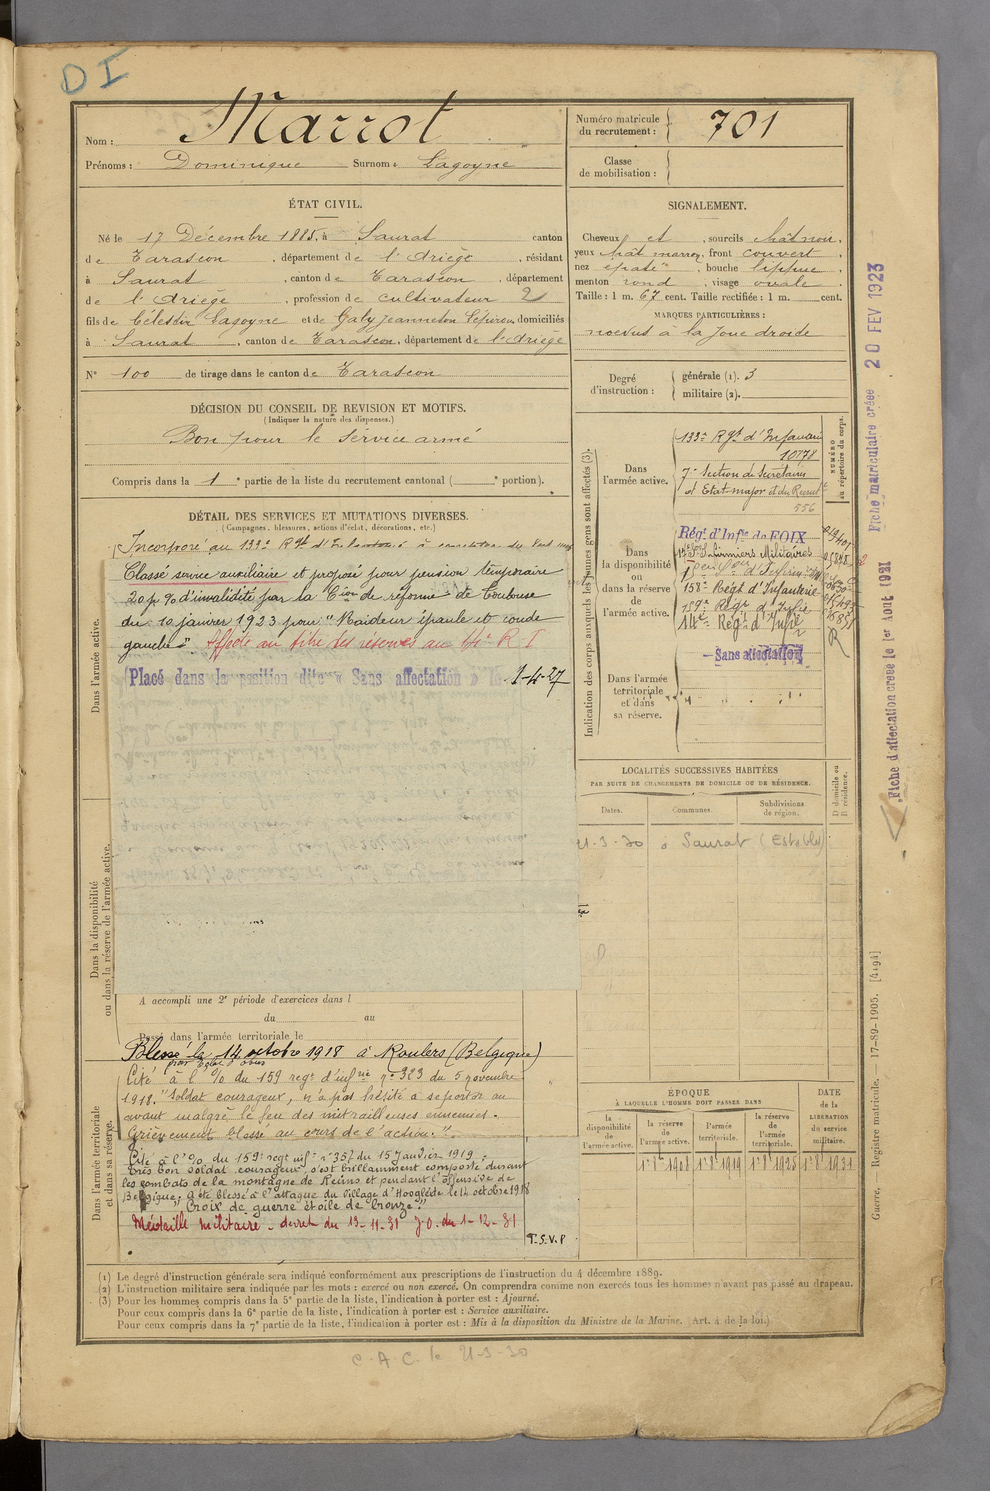 DI
Nom : Marrot
Prénoms : Dominique Surnom : Lagoyne
Numéro matricule du recrutement : 701
Classe de mobilisation :
ÉTAT CIVIL.
Né le 17 Décembre 1885, à Saurat canton
de Tarascon, département de l'Ariège, résidant
à Saurat, canton de Tarascon, département
de l'Ariège, profession de cultivateur 2
fils de Célestin Lagoyne et de Galy Jeanneton domiciliés
à Saurat, canton de Tarascon, département de l'Ariège
N° 100 de tirage dans le canton de Tarascon
SIGNALEMENT.
Cheveux et, sourcils chât noir,
yeux chât marron, front couvert
nez épaté, bouche lippue,
menton rond, visage ovale.
Taille : 1 m. 67 cent. Taille rectifiée : 1 m. cent.
MARQUES PARTICULIÈRES :
noevus à la joue droite
Degré d'instruction : générale (1). 3
militaire (2).
DÉCISION DU CONSEIL DE REVISION ET MOTIFS.
(Indiquer la nature des dispenses.)
Bon pour le service armé
Compris dans la 1e partie de la liste du recrutement cantonal ( e portion).
DÉTAIL DES SERVICES ET MUTATIONS DIVERSES.
(Campagnes, blessures, actions d'éclat, décorations, etc.)
Incorporé au 133e Rgt d'Infanterie à
Classé service auxiliaire et proposé pour pension temporaire
20 p % d'invalidité par la Cion de réforme de Toulouse
du 10 janvier 1923 pour "Raideur épaule et coude
gauche". Affecté au titre des réserves au 14e R I
Placé dans la position dite « Sans affectation » le 1-4-27
Dans l'armée active.
Dans la disponibilité ou dans la réserve de l'armée active.
A accompli une 2e période d'exercices dans l
du au
Passé dans l'armée territoriale le
Blessé le 14 octobre 1918 à Roulers (Belgique)
par éclat d'obus
Cité à l'% du 159 regt d'infrie n° 323 du 5 novembre
1918. "Soldat courageux, n'a pas hésité à se porter en
avant malgré le feu des mitrailleuses ennemies.
Grièvement blessé au cours de l'action."
Cité à l'% du 159e regt inft n° 357 du 15 Janvier 1919 :
très bon soldat courageux s'est brillamment comporté durant
les combats de la montagne de Reims et pendant l'offensive de
Belgique, a été blessé à l'attaque du village d'Hooglède le 14 octobre 1918
"Croix de guerre étoile de bronze"
Médaille Militaire - décret du 13-11-31 J.O. du 1-12-31
T.S.V.P
Dans l'armée territoriale et dans sa réserve.
Indication des corps auxquels les jeunes gens sont affectés (3).
NUMÉRO au répertoire du corps.
Dans l'armée active.
133e Rgt d'Infanterie
10178
7e Section de Secrétaires
et Etat-major et du Recrut
556
Dans la disponibilité ou dans la réserve de l'armée active.
Régt d'Infie de FOIX
Infirmiers Militaires
158e Régt d'Infanterie
159e Regt d'Infie
14e Régt d'Infie
Sans affectation
Dans l'armée territoriale et dans sa réserve.
LOCALITÉS SUCCESSIVES HABITÉES
PAR SUITE DE CHANGEMENTS DE DOMICILE OU DE RÉSIDENCE.
Dates. Communes. Subdivisions de région. D domicile ou R résidence.
21-3-30 à Saurat
ÉPOQUE
À LAQUELLE L'HOMME DOIT PASSER DANS
la disponibilité de l'armée active. la réserve de l'armée active. l'armée territoriale. la réserve de l'armée territoriale.
DATE de la LIBÉRATION du service militaire.
1er 8e 1908 1er 8e 1919 1er 8e 1925 1er 8e 1931
Fiche matriculaire créée 20 FEV 1923
Fiche d'affectation créée le 1er Aout 1921
Guerre. — Registre matricule. — 17-89-1905. [4194]
(1) Le degré d'instruction générale sera indiqué conformément aux prescriptions de l'instruction du 4 décembre 1889.
(2) L'instruction militaire sera indiquée par les mots : exercé ou non exercé. On comprendra comme non exercés tous les hommes n'ayant pas passé au drapeau.
(3) Pour les hommes compris dans la 5e partie de la liste, l'indication à porter est : Ajourné.
Pour ceux compris dans la 6e partie de la liste, l'indication à porter est : Service auxiliaire.
Pour ceux compris dans la 7e partie de la liste, l'indication à porter est : Mis à la disposition du Ministre de la Marine. (Art. 4 de la loi.)
C.A.C. le 21-3-30